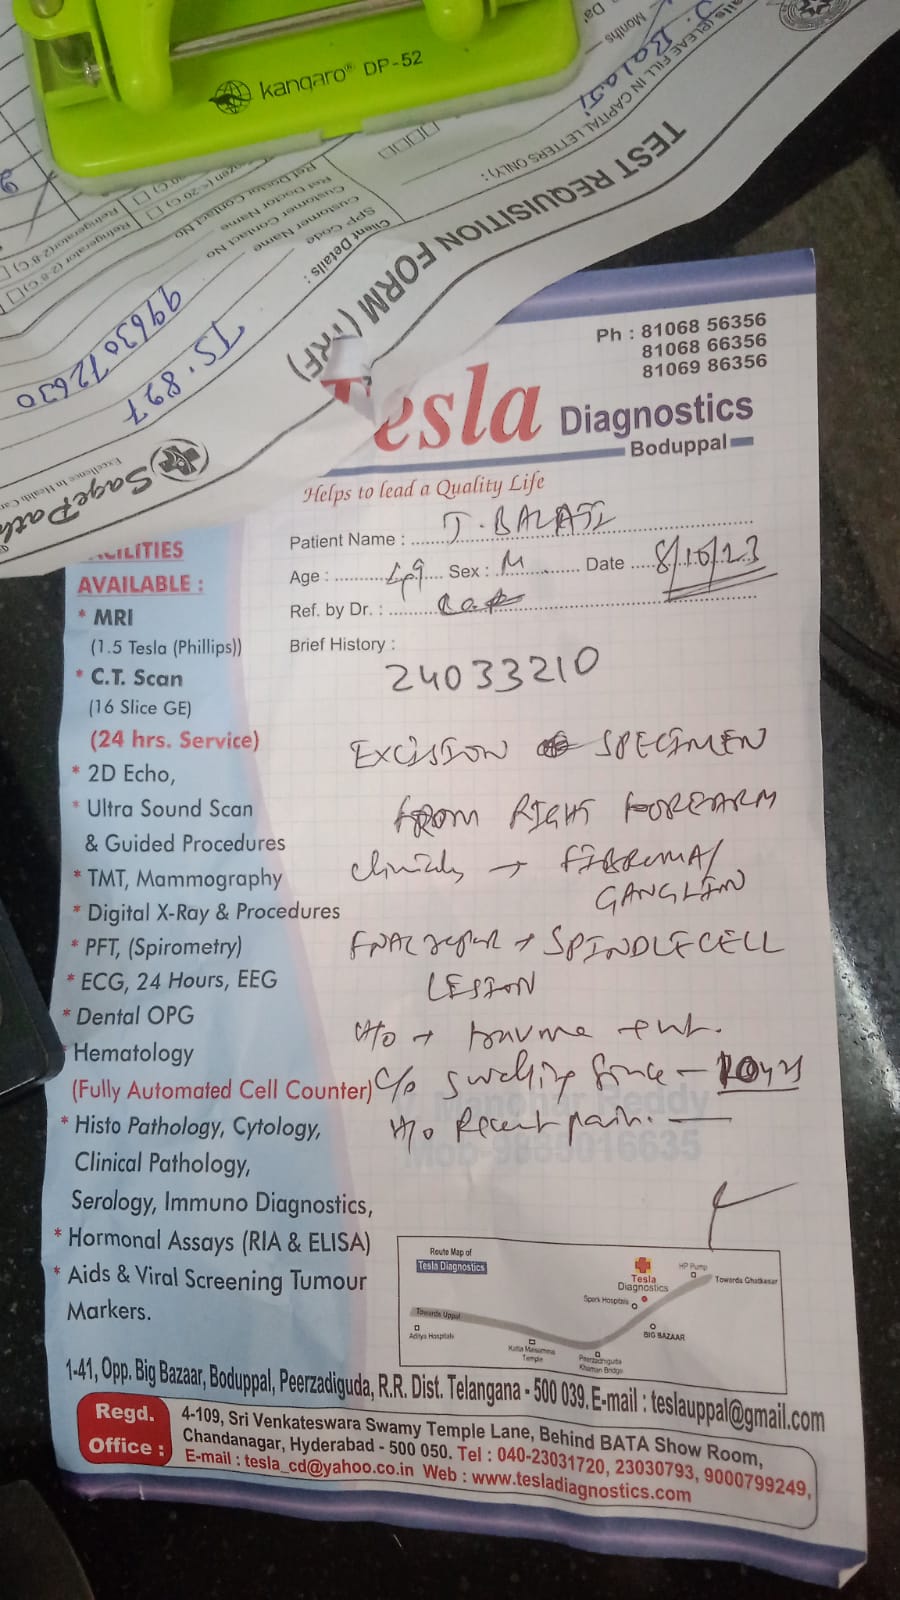 kangaro® DP-52
Months
Balaji
(PLEAE FILL IN CAPITAL LETTERS ONLY) :
TEST REQUISITION FORM (TRF)
Client Details :
SPP Code
Customer Name
Customer Contact No
Ref Doctor Name
Ref Doctor Contact No
Refrigerator (2-8 C)
TS.897
9963072630
SagePath
Excellence in Health Care
Ph : 81068 56356
81068 66356
81069 86356
Tesla Diagnostics
Boduppal
Helps to lead a Quality Life
Patient Name : J. BALAJI
Age : 49 Sex : M Date 8/10/23
Ref. by Dr. :
Brief History :
24033210
EXCISION SPECIMEN
FROM RIGHT FOREARM
Clinically → FIBROMA/
GANGLION
FNAC report → SPINDLE CELL
LESION
H/o → trauma
C/o swelling since – 10 yrs
H/o Recent pain. —
Manohar Reddy
Mob-9885016635
FACILITIES
AVAILABLE :
* MRI
(1.5 Tesla (Phillips))
* C.T. Scan
(16 Slice GE)
(24 hrs. Service)
* 2D Echo,
* Ultra Sound Scan
& Guided Procedures
* TMT, Mammography
* Digital X-Ray & Procedures
* PFT, (Spirometry)
* ECG, 24 Hours, EEG
* Dental OPG
* Hematology
(Fully Automated Cell Counter)
* Histo Pathology, Cytology,
Clinical Pathology,
Serology, Immuno Diagnostics,
* Hormonal Assays (RIA & ELISA)
* Aids & Viral Screening Tumour
Markers.
Route Map of
Tesla Diagnostics
Towards Uppal
Aditya Hospitals
Katta Maisamma
Temple
Peerzadhiguda
Khaman Bridge
Spark Hospitals
Tesla
Diagnostics
BIG BAZAAR
HP Pump
Towards Ghatkesar
1-41, Opp. Big Bazaar, Boduppal, Peerzadiguda, R.R. Dist. Telangana - 500 039. E-mail : teslauppal@gmail.com
Regd.
Office :
4-109, Sri Venkateswara Swamy Temple Lane, Behind BATA Show Room,
Chandanagar, Hyderabad - 500 050. Tel : 040-23031720, 23030793, 9000799249,
E-mail : tesla_cd@yahoo.co.in Web : www.tesladiagnostics.com